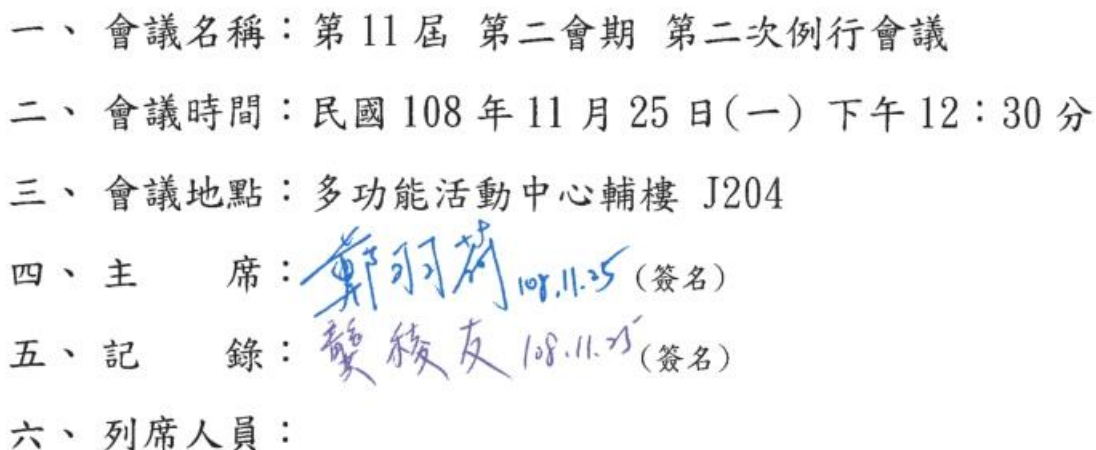 一、 會議名稱：第 11 屆 第二會期 第二次例行會議
二、 會議時間：民國 108 年 11 月 25 日(一) 下午 12：30 分
三、 會議地點：多功能活動中心輔樓 J204
四、 主 席：鄭羽荷 108.11.25 (簽名)
五、 記 錄：龔稜友 108.11.25 (簽名)
六、 列席人員：